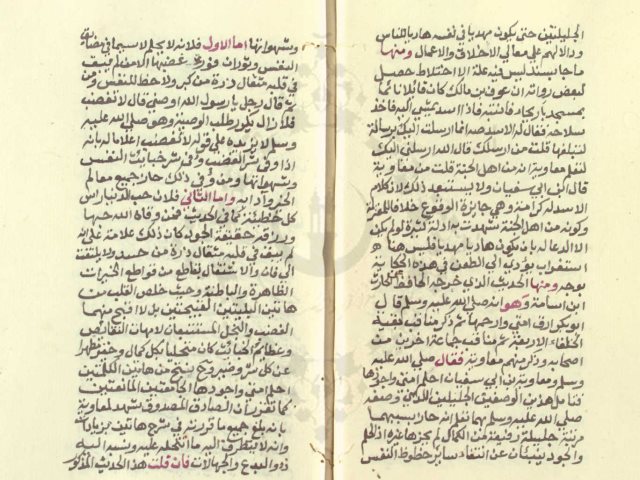 الجليلتين حتى يكون مهديا في نفسه هاديا للناس
ودالا لهم على معالي الاخلاق والاعمال ومنها
ما جا بسند ليس فيه علة الا اختلاط حصل
لبعض رواته ان عوف بن مالك كان قائلا نائما
بمسجد باريحاء فانتبه فاذا اسد يمشي اليه فاخذ
سلاحه فقال له الاسد صه انما ارسلت اليك برسالة
لتبلغها قلت من ارسلك قال الله ارسلني اليك
لتعلم معاوية انه من اهل الجنة قلت من معاوية
قال ابن ابي سفيان ولا يستبعد ذلك لان كلام
الاسد له كرامة وهي جايزة الوقوع خلافا للمعتزلة
وكونه من اهل الجنة شهدت به ادلة كثيرة لو لم يكن
الا الدعا له بان يكون هاديا مهديا فليس هنا
استغراب يؤدي الى الطعن في هذه الحكاية
بوجه ومنها الحديث الذي خرجه الحافظ الحارث
ابن اسامة وهو انه صلى الله عليه وسلم قال
ابو بكر ارق امتي وارحمها ثم ذكر مناقب بقية
الخلفاء الاربعة ثم مناقب جماعة اخرين من
اصحابه وذكر منهم معاوية فقال صلى الله عليه
وسلم ومعاوية بن ابي سفيان احلم امتي واجودها
فتامل هذين الوصفين الجليلين اللذين وصفه
صلى الله عليه وسلم بهما تعلم انه حاز بسببهما
مرتبة جليلة رفيعة من الكمال لم يحزها غيره اذ الحلم
والجود ينبئان عن انتفاء ساير حظوظ النفس
وشهواتها اما الاول فلانه لا يحلم لا سيما في مضائق
النفس وثورات فورة غضبها الا من لم يبق
في قلبه مثقال ذرة من كبر ولا حظ للنفس ومن
ثم قال رجل يا رسول الله اوصني قال لا تغضب
فلا زال يكرر طلب الوصية وهو صلى الله عليه
وسلم لا يزيده على قوله لا تغضب اعلاما له بانه
اذا وقي شر الغضب وقي شر خبائث النفس
وشهواتها ومن وقي ذلك حاز جميع معالم
الخير وادابه واما الثاني فلان حب الدنيا راس
كل خطيئة كما في الحديث فمن وقاه الله حبها
ورزقه حقيقة الجود كان ذلك علامة على انه
لم يبق في قلبه مثقال ذرة من حسد ولا يلتفت
الى فان ولا اشتغال بقاطع من قواطع الخيرات
الظاهرة والباطنة وحيث خلص القلب من
هاتين البليتين القبيحتين بل لا اقبح منهما
الغضب والبخل المستتبعان لامهات النقائص
وعظائم الخبائث كان متحليا بكل كمال وخير مطهرا
عن كل شر وضير وح ينتج من هاتين الكلمتين
احلم امتي واجودها الجامعتين المانعتين
كما تقرر ان الصادق المصدوق شهد لمعاوية
بانه بلغ جميع ما قررته في شرح هاتين
وانه لا يتطرق اليه ما انتحله عليه ونسبه اليه
ذوو البدع والجهالات فان قلت هذا الحديث المذكور